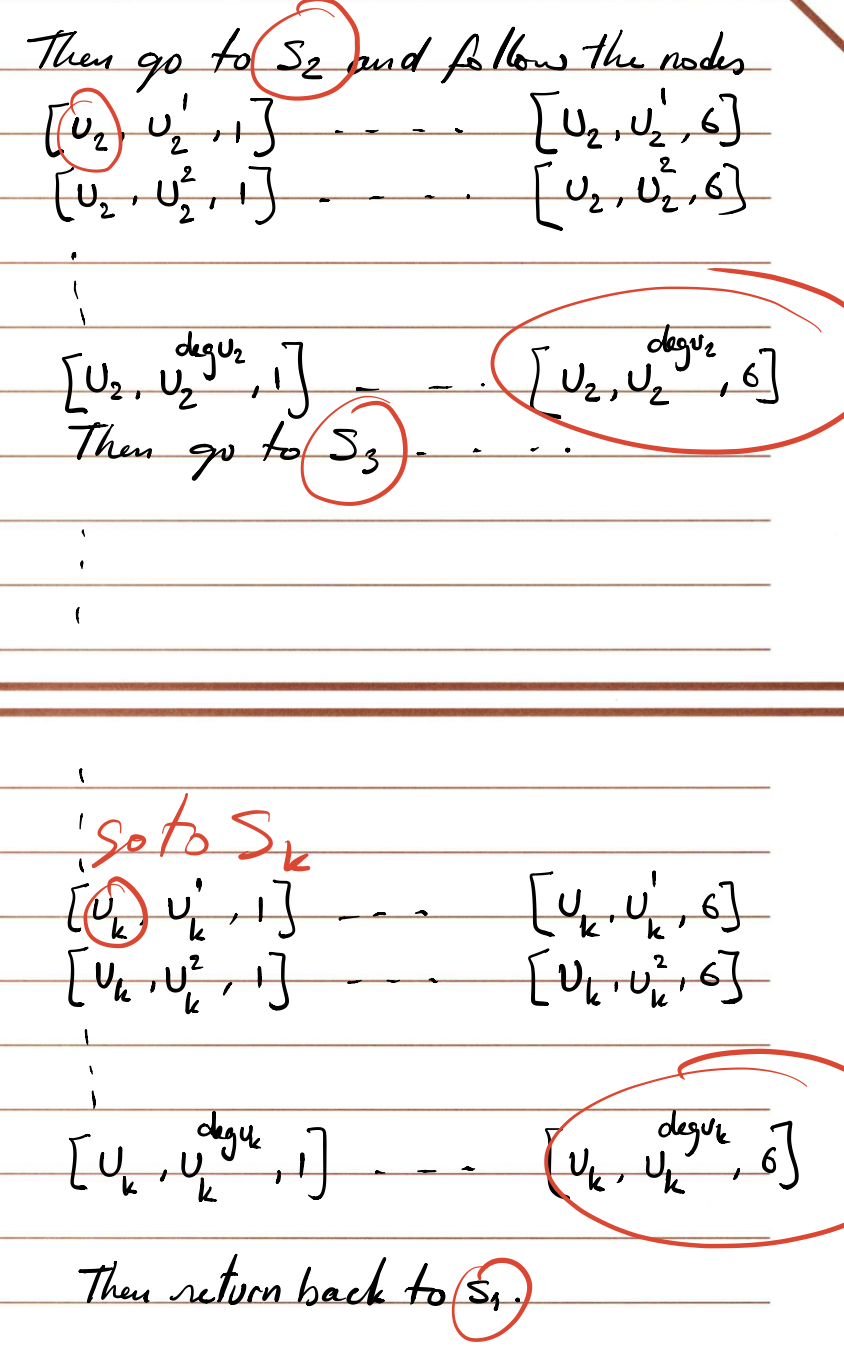 Then go to S₂ and follow the nodes
[U₂, U₂¹, 1] - - - - [U₂, U₂¹, 6]
[U₂, U₂², 1] - - - - [U₂, U₂², 6]
[U₂, U₂^degU₂, 1] - - - [U₂, U₂^degU₂, 6]
Then go to S₃ - - - -
go to Sₖ
[Uₖ, Uₖ¹, 1] - - - [Uₖ, Uₖ¹, 6]
[Uₖ, Uₖ², 1] - - - [Uₖ, Uₖ², 6]
[Uₖ, Uₖ^degUₖ, 1] - - - [Uₖ, Uₖ^degUₖ, 6]
Then return back to S₁.